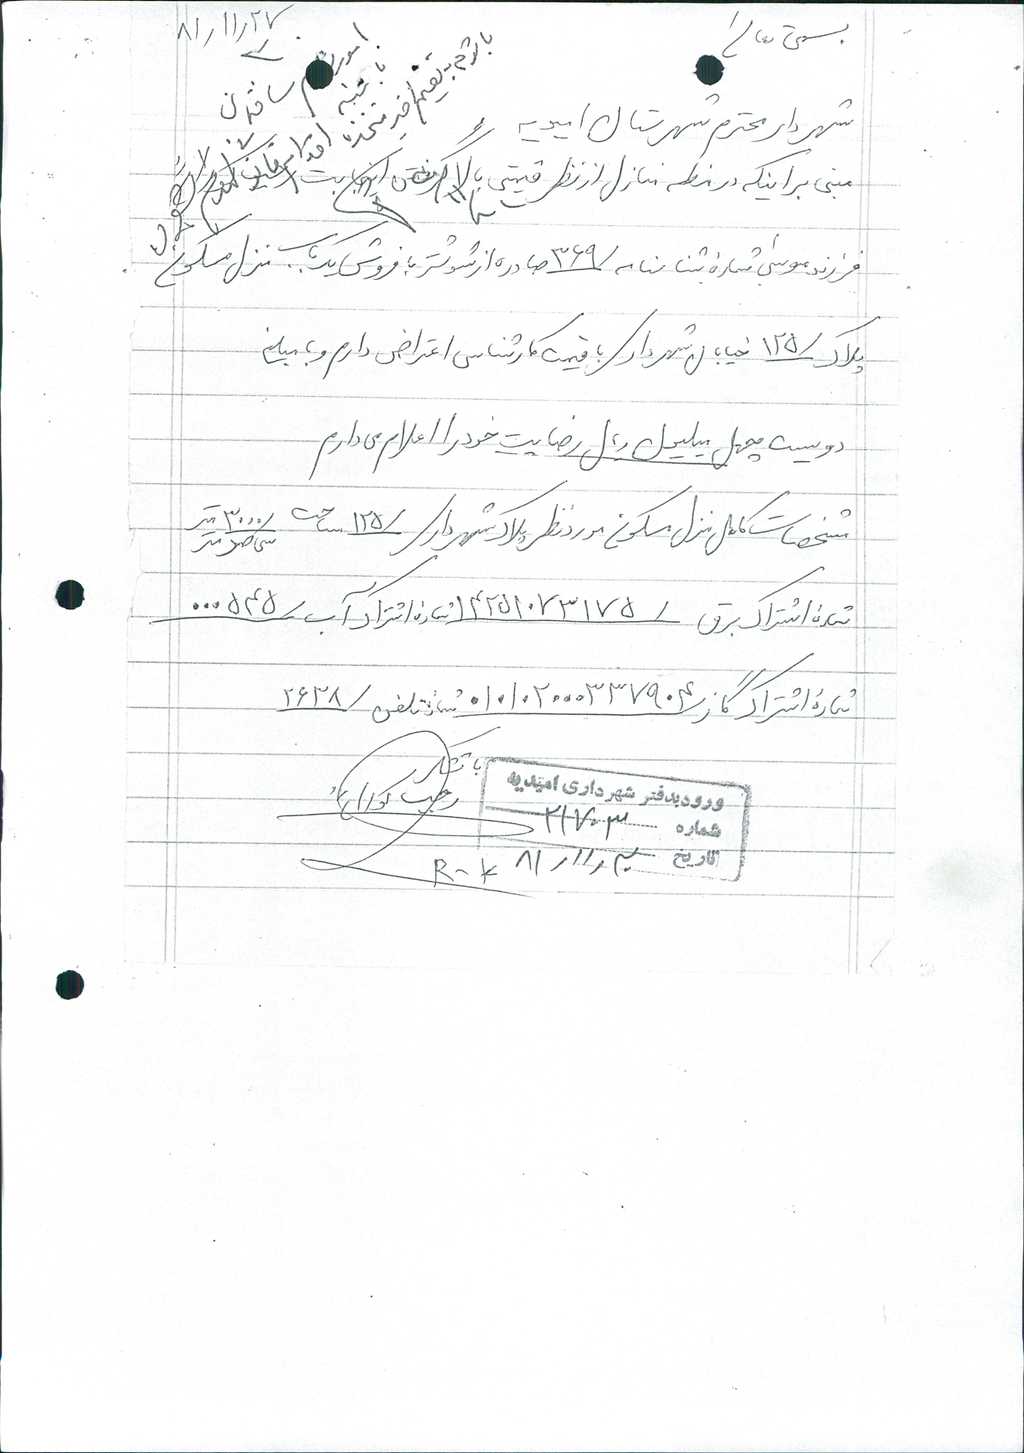 بسمه تعالی
۸۱/۱۱/۲۷
امور
با توجه به
شهردار محترم شهرستان امیدیه
مبنی بر اینکه در منطقه منازل از نظر قیمتی بالا
فرزند موسی شماره شناسنامه /۳۶۹ صادره از شوشتر با فروش یکباب منزل مسکونی
پلاک /۱۲۵ خیابان شهرداری با قیمت کارشناسی اعتراض دارم و با مبلغ
دویست چهل میلیون ریال رضایت خود را اعلام می دارم
مشخصات کامل منزل مسکونی مورد نظر پلاک شهرداری /۱۲۵ مساحت /۳۰۰۰ متر
سی صد متر
شماره اشتراک برق /۱۴۲۵۱۰۷۳۱۷۵ شماره اشتراک آب /۵۴۵۰۰۰
شماره اشتراک گاز ۰۱۰۱۰۲۰۰۰۰۳۳۷۹۰۴ شماره تلفن /۲۶۳۸
با تشکر
رجب
ورود بدفتر شهرداری امیدیه
شماره ۲۱۷۰۳
تاریخ ۸۱/۱۱/۳۰
R-K